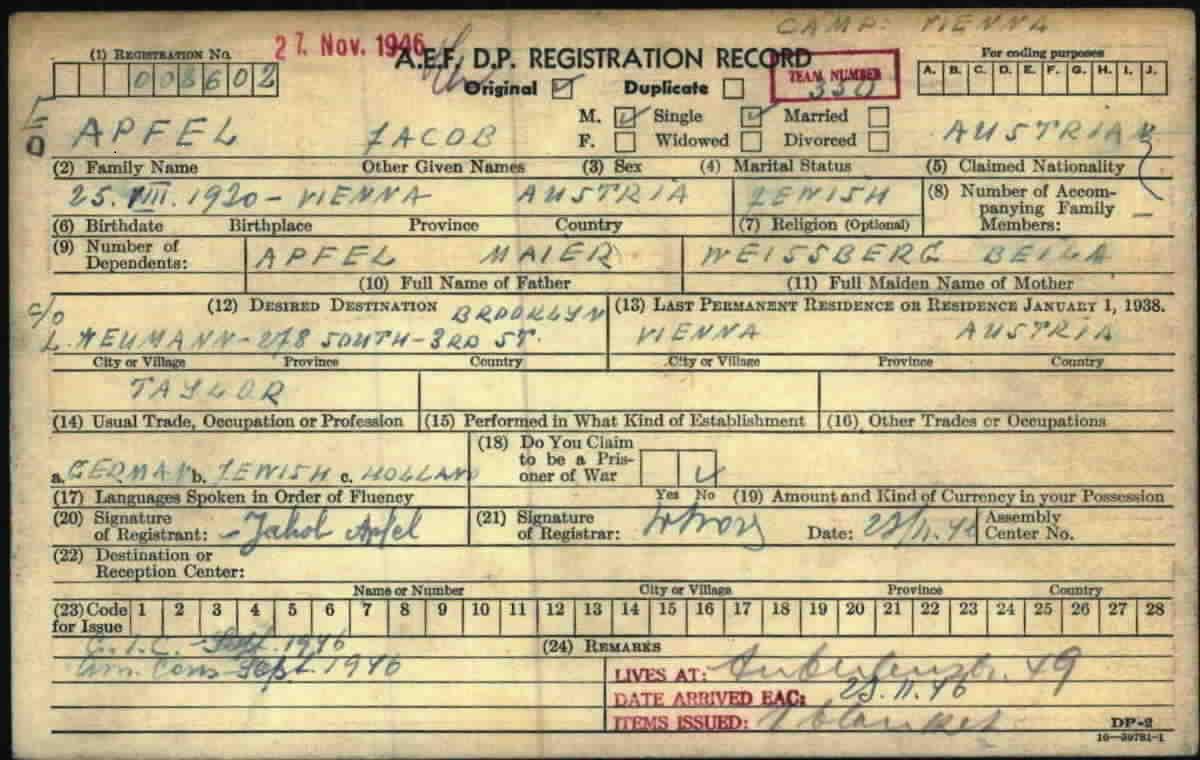 CAMP: VIENNA
(1) REGISTRATION NO.
27. Nov. 1946
A.E.F. D.P. REGISTRATION RECORD
For coding purposes
003602
Original ✓ Duplicate
TEAM NUMBER
330
A. B. C. D. E. F. G. H. I. J.
M. ✓ Single ✓ Married
APFEL JACOB
F. Widowed Divorced
AUSTRIAN
(2) Family Name Other Given Names (3) Sex (4) Marital Status (5) Claimed Nationality
25. VIII. 1920 - VIENNA AUSTRIA JEWISH
(8) Number of Accompanying Family Members: -
(6) Birthdate Birthplace Province Country (7) Religion (Optional)
(9) Number of Dependents:
APFEL MAIER WEISSBERG BEILA
(10) Full Name of Father (11) Full Maiden Name of Mother
(12) DESIRED DESTINATION BROOKLYN (13) LAST PERMANENT RESIDENCE OR RESIDENCE JANUARY 1, 1938.
c/o L. NEUMANN - 278 SOUTH - 3RD ST. VIENNA AUSTRIA
City or Village Province Country City or Village Province Country
TAYLOR
(14) Usual Trade, Occupation or Profession (15) Performed in What Kind of Establishment (16) Other Trades or Occupations
(18) Do You Claim to be a Prisoner of War
a. GERMAN b. JEWISH c. HOLLAND
(17) Languages Spoken in Order of Fluency Yes No (19) Amount and Kind of Currency in your Possession
(20) Signature of Registrant: - Jakob Apfel (21) Signature of Registrar: Date: 28/11.46 Assembly Center No.
(22) Destination or Reception Center:
Name or Number City or Village Province Country
(23) Code for Issue 1 2 3 4 5 6 7 8 9 10 11 12 13 14 15 16 17 18 19 20 21 22 23 24 25 26 27 28
C.I.C. - Sept. 1946 (24) REMARKS
Am. Cons Sept. 1946
LIVES AT: 49
DATE ARRIVED EAC: 28.11.46
ITEMS ISSUED: 1 blanket
DP-2
16-39781-1